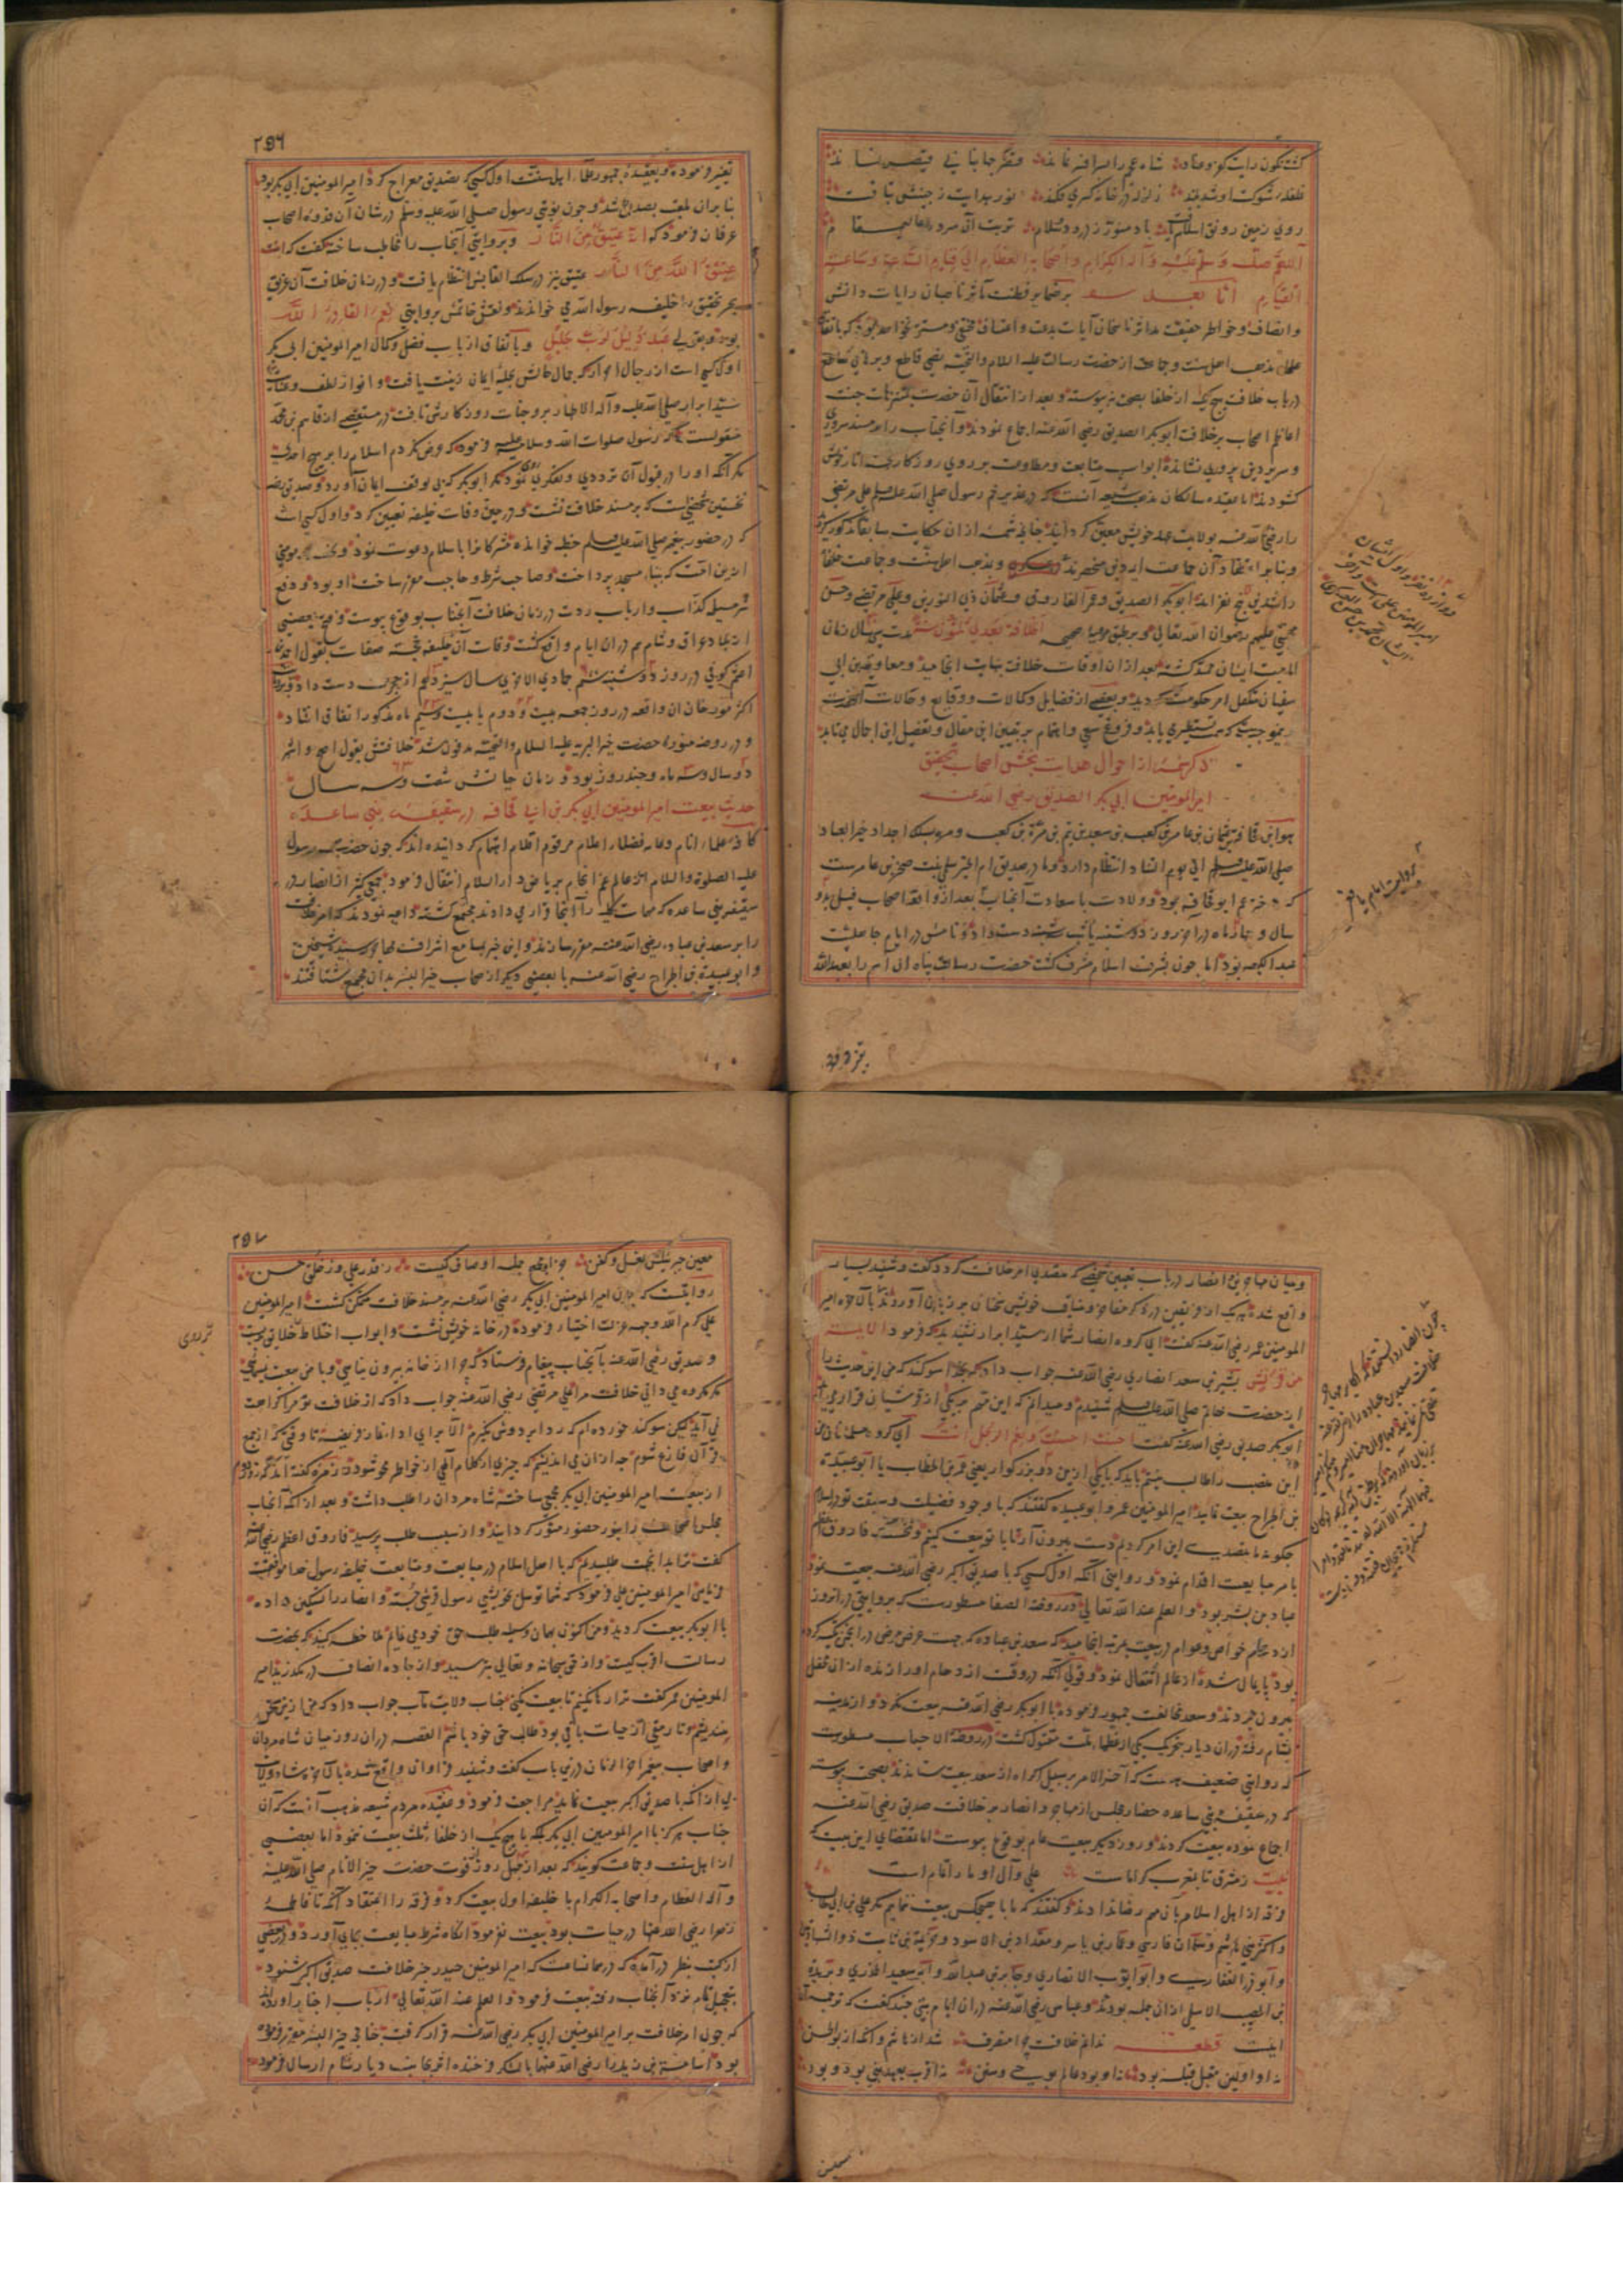 گشت نگون رایت کفر و عناد
غلغلهٔ شوکت او شد بلند زلزله در خانهٔ کسری فکند نور هدایت ز جبینش بتافت
روی زمین رونق
اللهم صل وسلم علیه وآله الکرام وأصحابه العظام إلی قیام الساعة وساعة
القیام اما بعد بر ضمایر فطنت مآثر ناصبان رایات دانش
و انصاف و خواطر حقیقت مآثر ماحیان آیات بدعت و اعتساف مختفی و مستتر نخواهد بود که باتفاق
علماء مذهب اهل سنت و جماعت از حضرت رسالت علیه السلام والتحیة نصی قاطع و برهانی ساطع
در باب خلافت هیچ یک از خلفا بصحت نپیوسته و بعد از انتقال آن حضرت بمتنزهات جنت
اعاظم اصحاب بر خلافت ابوبکر الصدیق رضی الله عنه اجماع نمودند و آنجناب را بر مسند سروری
و سریر دین پروری نشانده ابواب متابعت و مطاوعت بر روی روزگار
گشودند اما بعقیده سالکان مذهب شیعه آنست که در غدیر خم رسول صلی الله علیه وسلم علی مرتضی
را رضی الله عنه بولایت عهد خویش معین گردانید چنانچه شمه از آن حکایت سابقا مذکور گشت
و بنا بر اعتقاد آن جماعت و مذهب اهل سنت و جماعت خلفاء
راشدین پنج نفرند ابوبکر الصدیق و عمر الفاروق و عثمان ذی النورین و علی مرتضی و حسن
مجتبی علیهم رضوان الله تعالی و بر طبق حدیث صحیح الخلافة بعدی ثلثون سنة مدت سی سال زمان
امامت ایشان ممتد گشته بعد از آن اوقات خلافت نهایت انجامید و معاویة بن ابی
سفیان متکفل امر حکومت گردید و بعضی از فضایل و کمالات و وقایع و حالات
ذکر شمه از احوال هدایت بخش اصحاب تحقیق
امیر المومنین ابی بکر الصدیق رضی الله عنه
هو ابن قحافة عثمان بن عامر بن کعب بن سعد بن تیم بن مرة بن کعب و مره بیک اجداد خیر العباد
صلی الله علیه وسلم الی یوم التناد انتظام دارد و مادر صدیق ام الخیر سلمی بنت صخر بن عامرست
که دختر عم ابو قحافه بود و ولادت با سعادت آنجناب بعد از واقعهٔ اصحاب فیل بدو
سال و چهار ماه در آخر روز دوشنبه دست داد و نامش در ایام جاهلیت
عبد الکعبه بود اما چون بشرف اسلام مشرف گشت حضرت رسالت پناه آن اسم را بعبدالله
بروایت امام یافعی
تغیر فرمود
۲۵۶
تغیر فرموده و بعقیدهٔ جمهور علماء اهل سنت اول کسی که تصدیق معراج کرد امیر المومنین ابی بکر بود
بنا بر آن لقب بصدیق شد و چون نوبتی رسول صلی الله علیه وسلم در شان آن قدوه اصحاب
عرفان فرمود که انه عتیق من النار و بروایتی آنجناب را مخاطب ساخته گفت که انت
عتیق الله من النار عتیق نیز در سلک القابش انتظام یافت و در زمان خلافت آن غریق
بحر تحقیق را خلیفه رسول الله می خواندند و نقش خاتمش بروایتی نعم القادر الله
بود و بقولی عبد ذلیل لرب جلیل و باتفاق ارباب فضل و کمال امیر المومنین ابی بکر
اول کسی است از رجال احرار که جمال حالش بحلیهٔ ایمان زینت یافت و انوار لطف و عنایت
سید ابرار صلی الله علیه وآله الاطهار بر وجنات روزگارش تافت در مستقصی از قاسم بن محمد
منقولست که رسول صلوات الله وسلامه علیه فرمود که عرض نکردم اسلام را بر هیچ احدی
مگر آنکه او را در قبول آن ترددی و تفکری روی نمود مگر ابوبکر که بی توقف ایمان آورد و صدیق
نخستین شخصیست که بر مسند خلافت نشست و در حین وفات خلیفه تعیین کرد و اول کسی است
که در حضور پیغمبر صلی الله علیه وسلم خطبه خوانده مشرکانرا باسلام دعوت نمود
ازین امت که ببناء مسجد پرداخت و صاحب شرط و حاجب مقرر ساخت او بود و دفع
شر مسیلمه کذاب و ارباب ردت در زمان خلافت آنجناب بوقوع پیوست و فتح بعضی
از بلاد عراق و شام هم در آن ایام واقع گشت وفات آن خلیفه خجسته صفات بقول احمد بن
اعثم کوفی در روز دوشنبه ششم جمادی الاخری سال سیزدهم از هجرت دست داد و بروایت
اکثر مورخان آن واقعه در روز جمعه بیست و دوم یا بیست وسیم ماه مذکور اتفاق افتاد
و در روضه منوره حضرت خیر البریه علیه السلام والتحیة مدفون شد مدت خلافتش بقول اصح و اشهر
دو سال و سه ماه و چند روز بود و زمان حیاتش شصت و سه سال
حدیث بیعت امیر المومنین ابی بکر بن ابی قحافه در سقیفهٔ بنی ساعده
کافهٔ علماء انام و عامه فضلاء اعلام مرقوم اقلام اهتمام گردانیده اند که چون حضرت رسول
علیه الصلوة والسلام از عالم غم انجام بریاض دار السلام انتقال فرمود جمعی کثیر از انصار در
سقیفه بنی ساعده که مهمات کلیه را آنجا قرار می دادند مجتمع گشته داعیه نمودند که امر خلافت
را بر سعد بن عباده رضی الله عنه مقرر سازند و این خبر بمسامع اشراف مهاجر رسید شیخین
و ابو عبیدة بن الجراح رضی الله عنه با بعضی دیگر از اصحاب خیر البشر بدان مجمع شتافتند
و میان مهاجر و انصار در باب تعیین شخصی که متصدی امر خلافت گردد گفت و شنید بسیار
واقع شده هر یک از فریقین در ذکر مفاخر و مناقب خویش سخنان بر زبان آوردند تا بالاخره امیر
المومنین عمر رضی الله عنه گفت ای گروه انصار شما از سید ابرار نشنیدید که فرمود الائمة
من قریش بشیر بن سعد انصاری رضی الله عنه جواب داد که بخدا سوگند که من این حدیث را
از حضرت خاتم صلی الله علیه وسلم شنیدم و میدانم که این مهم جز بیکی از قریشیان قرار
ابوبکر صدیق رضی الله عنه گفت احسنت احسنت ونعم الرجل انت ای گروه مسلمانان من
این منصب را طالب نیستم باید که با یکی ازین دو بزرگوار یعنی عمر بن الخطاب یا ابو عبیدة
بن الجراح بیعت نمایید امیر المومنین عمر و ابو عبیده گفتند که با وجود فضیلت و سبقت تو در اسلام
چگونه ما متصدی این امر گردیم دست بیرون آر تا با تو بیعت کنیم و نخستین فاروق اعظم
بامر مبایعت اقدام نمود و روایتی آنکه اول کسی که با صدیق اکبر رضی الله عنه بیعت نمود
عباد بن بشر بود والعلم عند الله تعالی در روضة الصفا مسطورست که بروایتی در آنروز
ازدحام خواص و عوام در بیعت بمرتبه انجامید که سعد بن عباده که بجهت عرض مرض در انجمن تکیه کرده
بود پایمال شده از عالم انتقال نمود و قولی آنکه در وقت ازدحام او را از آن محفل
بیرون بردند و سعد مخالفت جمهور فرموده با ابوبکر رضی الله عنه بیعت نکرد و از مدینه
بشام رفته در آن دیار بتحریک یکی از عظماء ملت مقتول گشت در روضة الاحباب مسطورست
که روایتی ضعیف هست که آخر الامر بر سبیل اکراه از سعد بیعت ستاندند بصحت پیوسته
که در سقیفه بنی ساعده حضار مجلس از مهاجر و انصار بر خلافت صدیق رضی الله عنه
اجماع نموده بیعت کردند و روز دیگر بیعت عام بوقوع پیوست اما بمقتضای این بیت که
بیت ز مشرق تا بمغرب گر امامست علی و آل او ما را تمامست
فرقه از اهل اسلام بآن مهم رضا ندادند و گفتند که ما با هیچکس بیعت ننماییم مگر علی بن ابی طالب
و اکثر بنی هاشم و سلمان فارسی و عمار بن یاسر و مقداد بن الاسود و خزیمة بن ثابت ذو الشهادتین
و ابو ذر الغفاری و ابو ایوب الانصاری و جابر بن عبدالله و ابو سعید الخدری و بریدة
بن الحصیب الاسلمی از آن جمله بودند و عباس رضی الله عنه در آن ایام بیتی چند گفت که ترجمه آن
اینست قطعه ندانم خلافت چرا منصرف شد از هاشم و آنگه از بوالحسن
نه او اولین مقبل قبله بود نه او بود عالم بوحی و سنن نه اقرب بعهد نبی بود و بود
معین
۲۵۷
معین جبرئیلش بغسل و کفن جز او مجمع جمله اوصاف کیست ز قدر علی وز خلق حسن
روایتست که چون امیر المومنین ابی بکر رضی الله عنه بر مسند خلافت متمکن گشت امیر المومنین
علی کرم الله وجهه عزلت اختیار فرموده در خانه خویش نشست و ابواب اختلاط خلایق بربست
و صدیق رضی الله عنه بآنجناب پیغام فرستاد که چرا از خانه بیرون نیامدی و با من بیعت نمی کنی
مگر مکروه می دانی خلافت مرا علی مرتضی رضی الله عنه جواب داد که از خلافت تو مرا کراهت
نمی آید لیکن سوگند خورده ام که ردا بر دوش نگیرم الا برای اداء نماز فریضه تا وقتی که از جمع
قرآن فارغ شوم چه از آن می اندیشم که چیزی از کلام الهی از خواطر محو شود و زمره گفته اند که روز دوم
از بیعت امیر المومنین ابی بکر مجمعی ساخته شاه مردان را طلب داشت و بعد از آنکه آنجناب
مجلس اصحاب را بنور حضور منور گردانید و از سبب طلب پرسید فاروق اعظم رضی الله عنه
گفت ترا بدان جهت طلبیدیم که با اهل اسلام در مبایعت و متابعت خلیفه رسول خدا موافقت
فرمایی امیر المومنین علی فرمود که شما توسل بخویشی رسول قرشی جسته و انصار را تسکین داده
با ابوبکر بیعت کردید و من اکنون بهمان وسیله طلب حق خود می نمایم ملاحظه کنید که بحضرت
رسالت اقرب کیست و از حق سبحانه و تعالی بترسید و از جاده انصاف در مگذرید امیر
المومنین عمر گفت ترا رها نکنیم تا بیعت نکنی جناب ولایت مآب جواب داد که من ازین سخن
نیندیشم و تا رمقی از حیات باقی بود طالب حق خود باشم القصه در آن روز میان شاه مردان
و اصحاب پیغمبر آخر الزمان درین باب گفت و شنید فراوان واقع شده بالاخره شاه ولایت
بی از آنکه با صدیق اکبر بیعت نماید مراجعت فرمود و عقیده مردم شیعه مذهب آنست که آن
جناب هرگز با امیر المومنین ابی بکر بلکه با هیچ یک از خلفاء ثلث بیعت ننمود اما بعضی
از اهل سنت و جماعت گویند که بعد از چهل روز از فوت حضرت خیر الانام صلی الله علیه
و آله العظام و اصحابه الکرام با خلیفه اول بیعت کرد و فرقه را اعتقاد آنکه تا فاطمه
زهرا رضی الله عنها در حیات بود بیعت نفرمود آنگاه شرط مبایعت بجای آورد و در بعضی
از کتب بنظر در آمده که در همانساعت که امیر المومنین حیدر خبر خلافت صدیق اکبر شنود
بتعجیل تمام نزد آنجناب رفته بیعت فرمود والعلم عند الله تعالی ارباب اخبار آورده اند
که چون امر خلافت بر امیر المومنین ابی بکر رضی الله عنه قرار گرفت چنانچه خیر البشر مقرر فرموده
بود اسامة بن زید را رضی الله عنهما با لشکر فرخنده اثر بجانب دیار شام ارسال فرمود